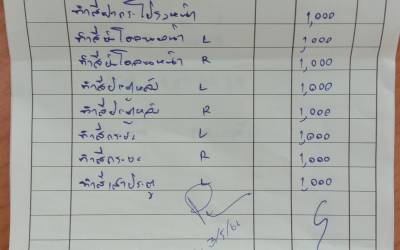 ทำสีฝากระโปรงหน้า 1,000
ทำสีบังโคลนหน้า L 1,000
ทำสีบังโคลนหน้า R 1,000
ทำสีประตูหลัง L 1,000
ทำสีประตูหลัง R 1,000
ทำสีกระบะ L 1,000
ทำสีกระบะ R 1,000
ทำสีเสาประตู L 1,000
3/5/66